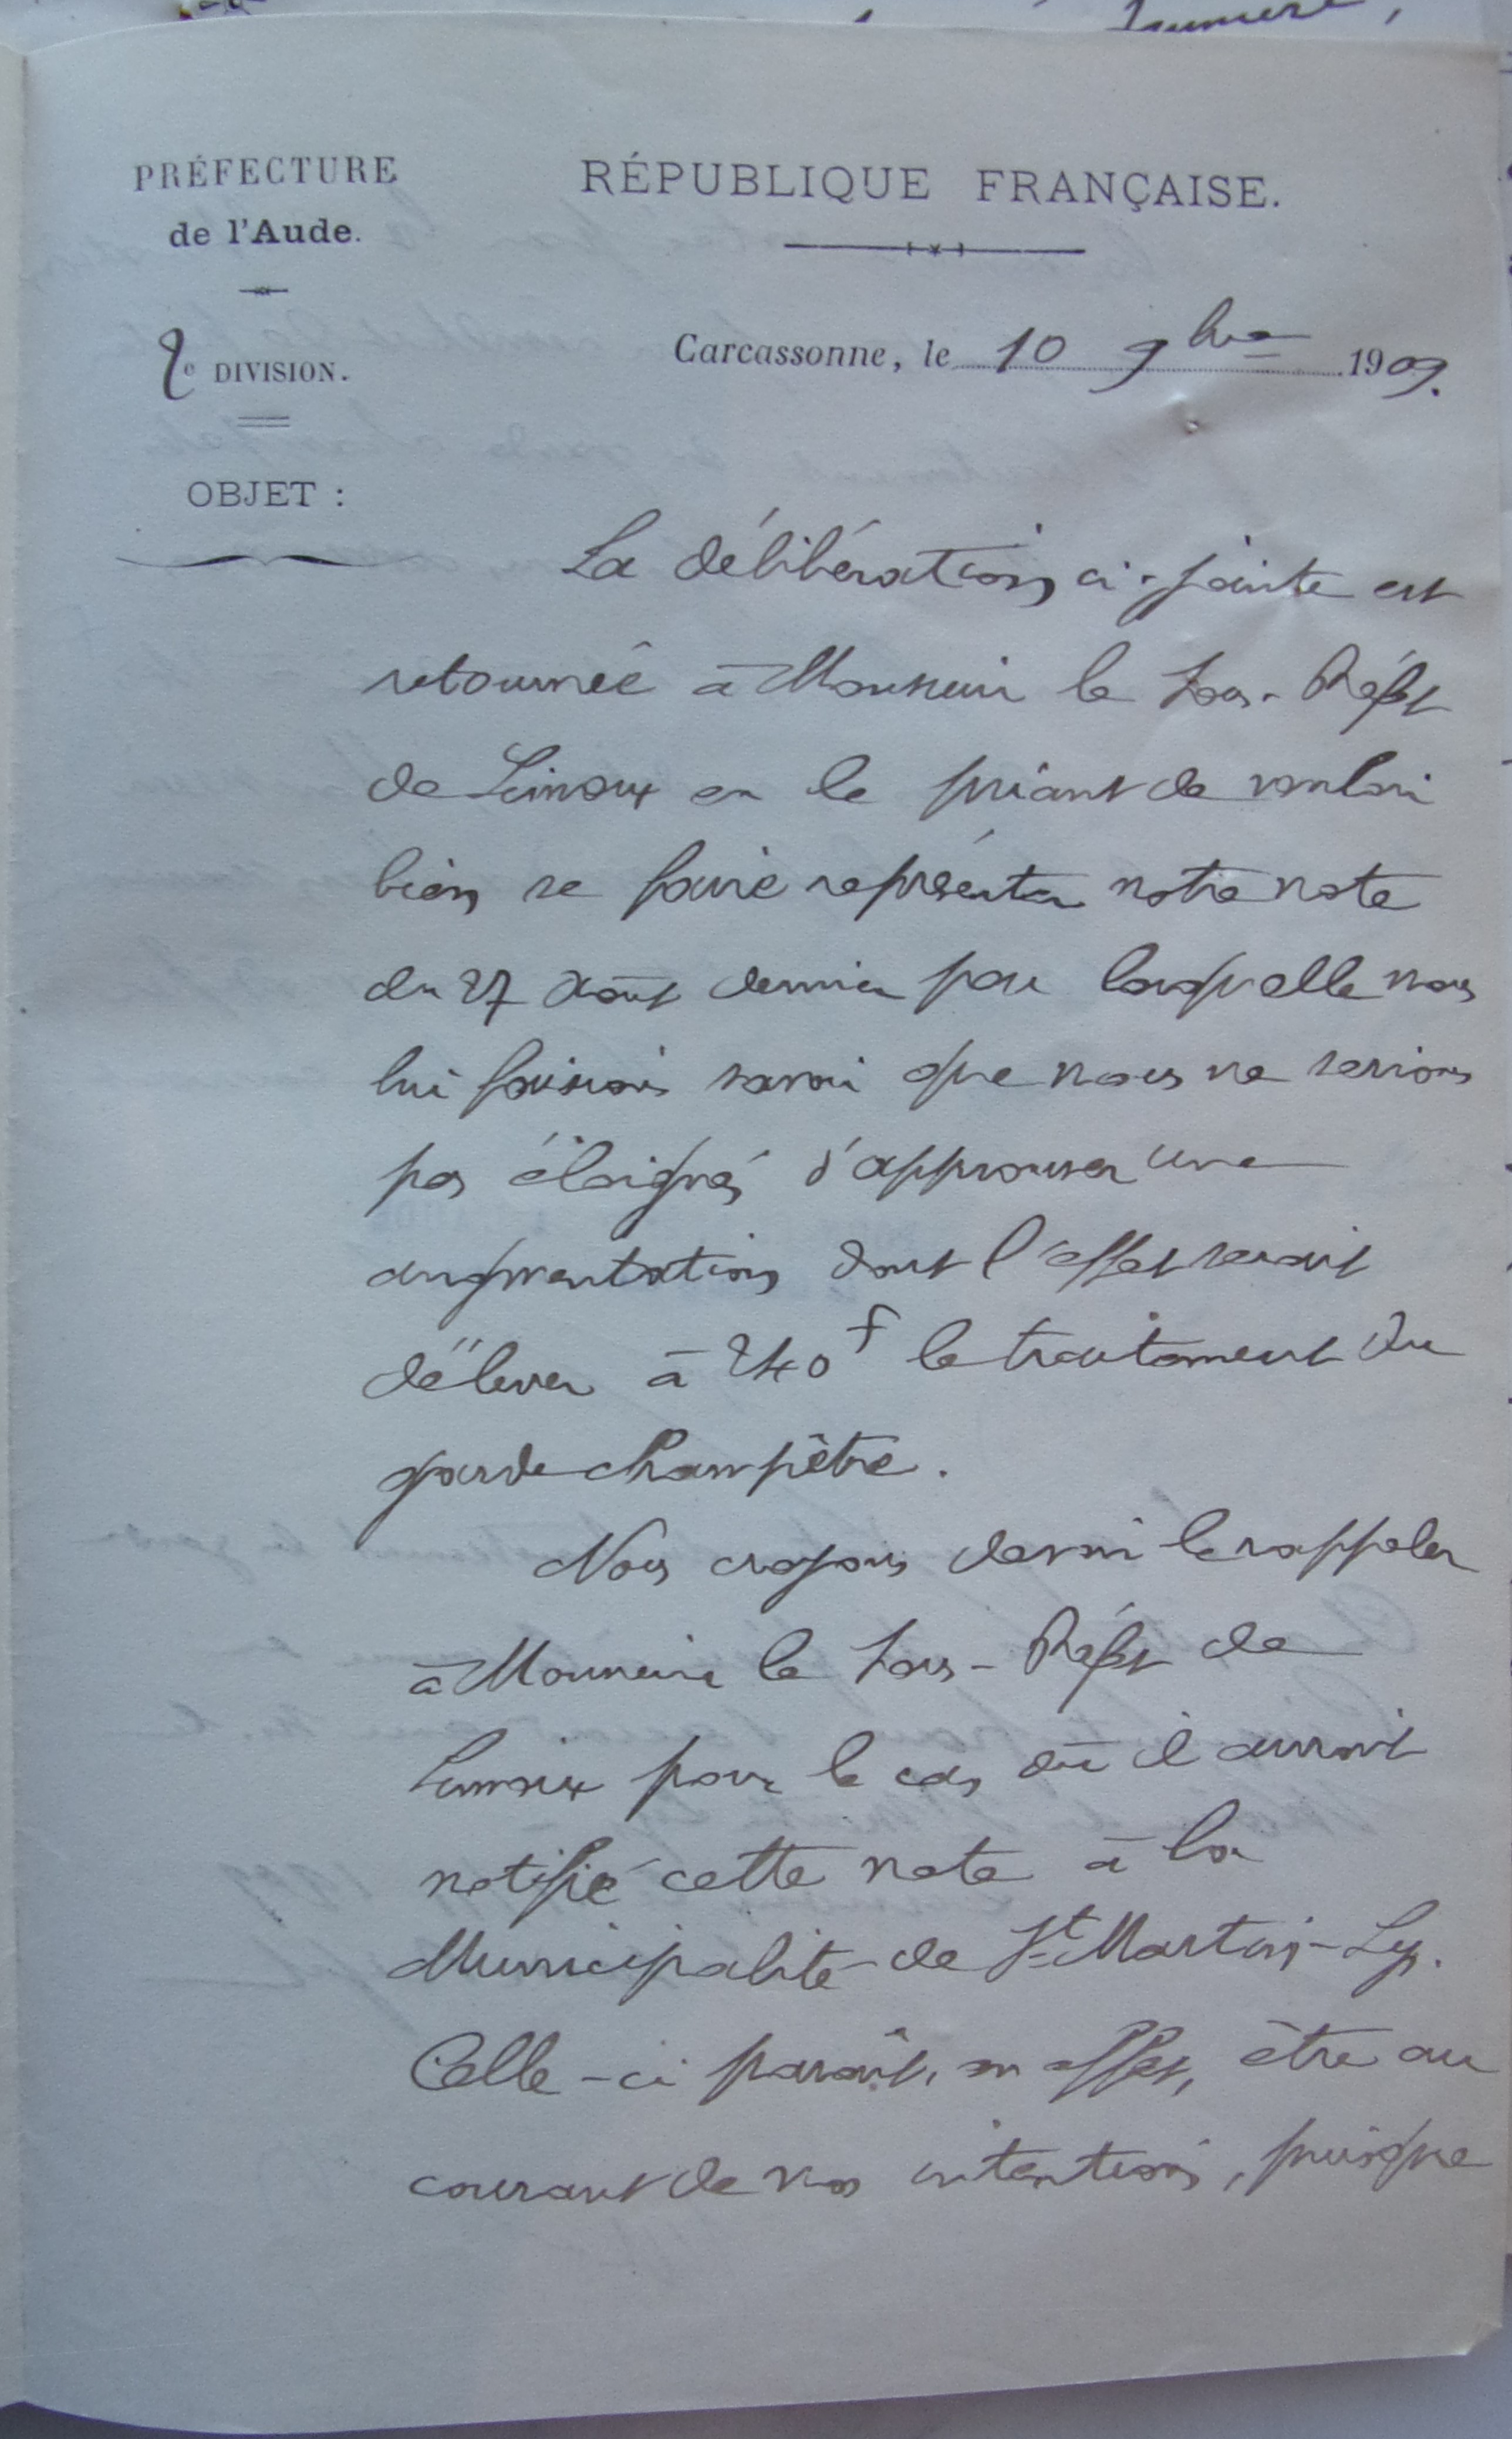 PRÉFECTURE
de l'Aude.
2e DIVISION.
OBJET :
RÉPUBLIQUE FRANÇAISE.
Carcassonne, le 10 9bre 1909.
La délibération ci-jointe est
retournée à Monsieur le Sous-Préfet
de Limoux en le priant de vouloir
bien se faire représenter notre note
du 27 Août dernier par laquelle nous
lui faisions savoir que nous ne serions
pas éloignés d'approuver une
augmentation dont l'effet serait
d'élever à 240f le traitement du
garde champêtre.
Nous croyons devoir le rappeler
à Monsieur le Sous-Préfet de
Limoux pour le cas où il aurait
notifié cette note à la
Municipalité de St Martin-Lys.
Celle-ci paraît, en effet, être au
courant de nos intentions, puisque